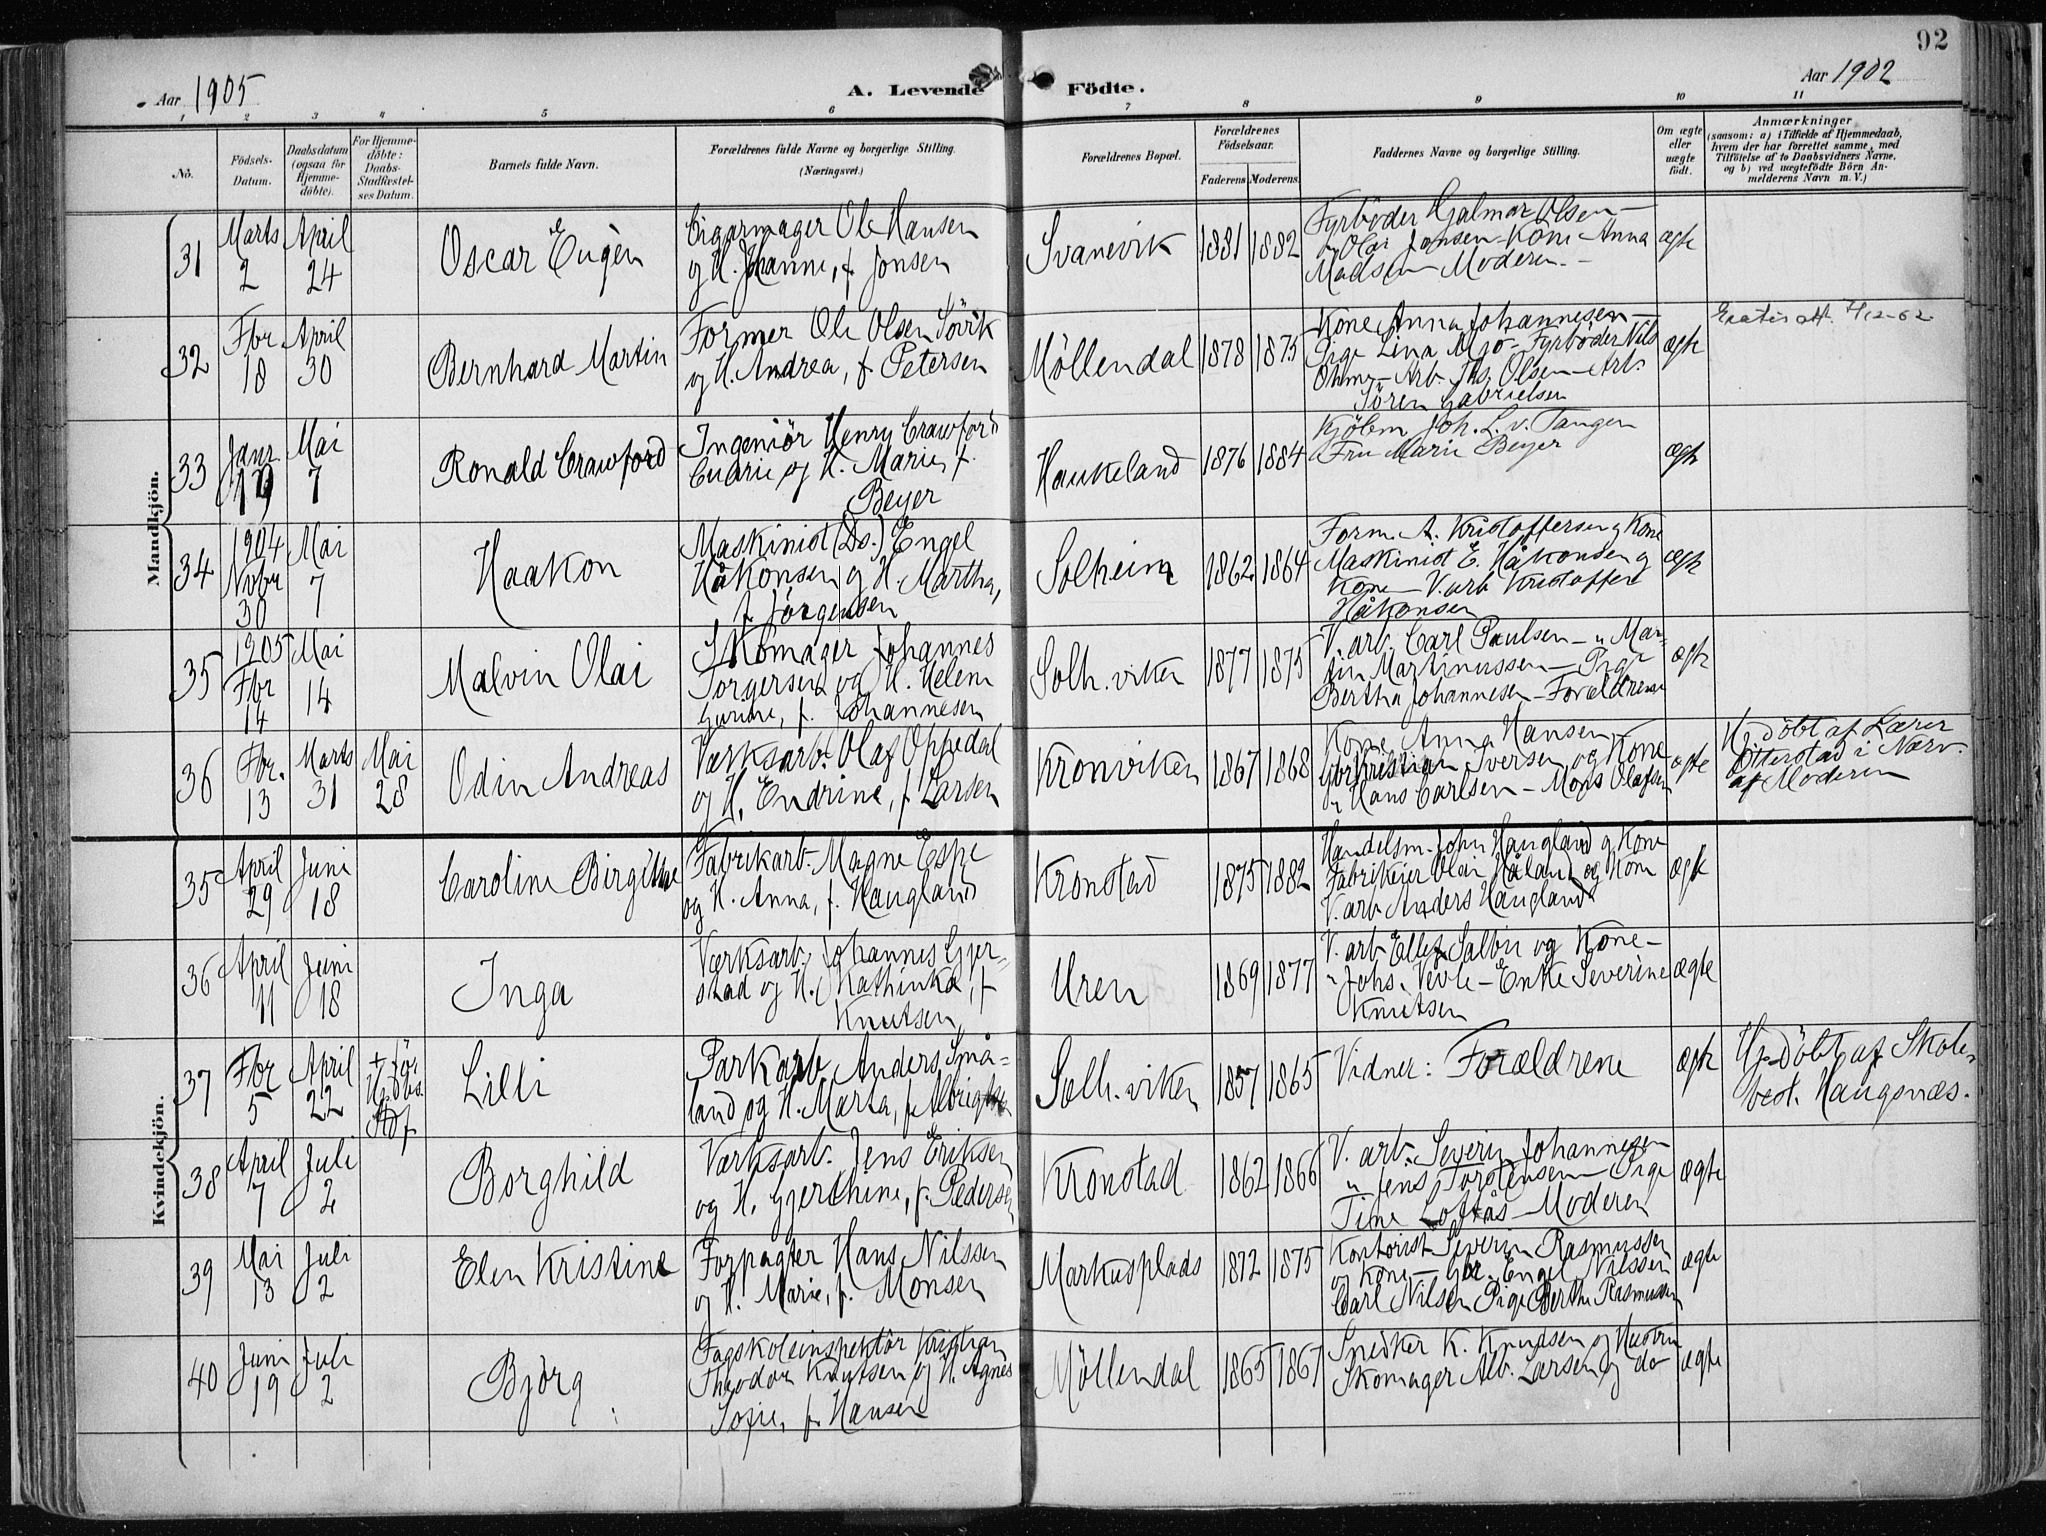 92
Aar 1905
A. Levende Födte.
Aar 1902
1 2 3 4 5 6 7 8 9 10 11
No.
Födsels-
Datum.
Daabsdatum
(ogsaa for
Hjemme-
döbte).
For Hjemme-
döbte:
Daabs-
Stadfæstel-
ses Datum.
Barnets fulde Navn.
Forældrenes fulde Navne og borgerlige Stilling.
(Næringsvei.)
Forældrenes Bopæl.
Forældrenes
Födselsaar.
Faderens Moderens
Faddernes Navne og borgerlige Stilling.
Om ægte
eller
uægte
födt.
Anmærkninger
(saasom: a) i Tilfælde af Hjemmedaab,
hvem der har forrettet samme, med
Tilföielse af to Daabsvidners Navne,
og b) ved uægtefödte Börn An-
melderens Navn m. V.)
Mandkjön.
31
Marts
2
April
24
Oscar Eugèn
Cigarmager Ole Hansen
og H. Johanne, f. Jonsen
Svanevik
1881 1882
Fyrböder Hjalmar Olsen—
Jansen - Kone Anna
Madsen - Moderen.
ægte
32
Fbr
18
April
30
Bernhard Martin
Former Ole Olsen Sövik
og H. Andrea, f. Petersen
Möllendal
1878 1875
Kone Anna Johannesen—
Pige Lina Mjö - Fyrböder Nils
- Arb. Jhs. Olsen - Arb.
Sören Gabrielsen
ægte
33
Janr.
19
Mai
7
Ronald Crawford
Ingeniör Henry Crawford
og H. Marie, f.
Beyer
Haukeland
1876 1884
Joh. L. v. Tangen
Fru Marie Beyer
ægte
34
1904
Novbr
30
Mai
7
Haakon
Maskinist (Ds.) Engel
Håkonsen og H. Martha,
f. Jörgensen
Solheim
1862 1864
Form. A. Kristoffersen og Kone
Maskinist E. Håkonsen og
Kone - V.arb. Kristoffer
Håkonsen
ægte
35
1905
Fbr
14
Mai
14
Malvin Olai
Skomager Johannes
Torgersen og H. Helene
Gurine, f. Johannesen
Solh.viken
1877 1875
V.arb. Carl Paulsen - " Mar-
tin Martinussen - Pige
Bertha Johannesen - Forældrene
ægte
36
Fbr.
13
Marts
31
Mai
28
Odin Andreas
Værksarb. Olaf Oppedal
og H. Endrine, f. Larsen
Kronviken
1867 1868
Kone Anna Hansen
Kristian Iversen og Kone
" Hans Carlsen - Mons Olafsen
ægte
Hj.döbt af Lærer
Otterstad i Nærv.
af Moderen
Kvindekjön.
35
April
29
Juni
18
Caroline Birgitte
Fabrikarb. Magne Espe
og H. Anna, f. Haugland
Kronstad
1875 1882
Handelsm. John Haugland og Kone
Fabrikeier Olai Håland og Kone
V.arb Anders Haugland
ægte
36
April
11
Juni
18
Inga
Værksarb. Johannes Gjer-
stad og H. Kathinka, f.
Knutsen
Uren
1869 1877
V.arb Ellef Salbu og Kone -
" Johs. Vevle - Enke Severine
Knutsen
ægte
37
Fbr
5
April
22
+ för
Lilli
Parkarb Anders Små-
land og H. Marta, f. Albrigtsen
Solh.viken
1857 1865
Vidner: Forældrene
ægte
Hj.döbt af Skole-
best. Haugsnæs.
38
April
7
Juli
2
Borghild
Værksarb. Jens Eriksen
og H. Gjerthine, f. Pedersen
Kronstad
1862 1866
V. arb. Severin Johannesen
" Jens Torstensen - Pige
Tine Loftås - Moderen
ægte
39
Mai
13
Juli
2
Elen Kristine
Forpagter Hans Nilssen
og H. Marie, f. Monsen
Markusplads
1872 1875
Kontorist Severin Rasmussen
og Kone - Gbr. Engel Nilssen
Carl Nilsen Pige Berthe Rasmussen
ægte
40
Juni
19
Juli
2
Björg
Fagskoleinspektör Kristian
Theodor Knutsen og H. Agnes
Sofie, f. Hansen
Möllendal
1865 1867
Snedker K. Knudsen og Hustru
Skomager Alb. Larsen og do
ægte